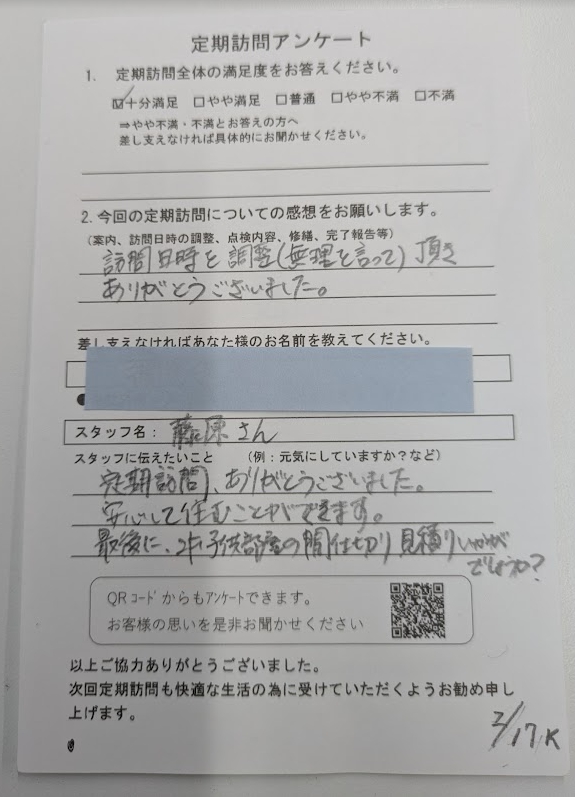 定期訪問アンケート
1. 定期訪問全体の満足度をお答えください。
☑十分満足 □やや満足 □普通 □やや不満 □不満
⇒やや不満・不満とお答えの方へ
差し支えなければ具体的にお聞かせください。
2.今回の定期訪問についての感想をお願いします。
(案内、訪問日時の調整、点検内容、修繕、完了報告等)
訪問日時を調整(無理を言って)頂き
ありがとうございました。
差し支えなければあなた様のお名前を教えてください。
スタッフ名: 藤原さん
スタッフに伝えたいこと (例:元気にしていますか?など)
定期訪問、ありがとうございました。
安心して住むことができます。
最後に、2F子供部屋の間仕切り見積りいかが
でしょうか?
QRコードからもアンケートできます。
お客様の思いを是非お聞かせください
以上ご協力ありがとうございました。
次回定期訪問も快適な生活の為に受けていただくようお勧め申し
上げます。
2/17 K